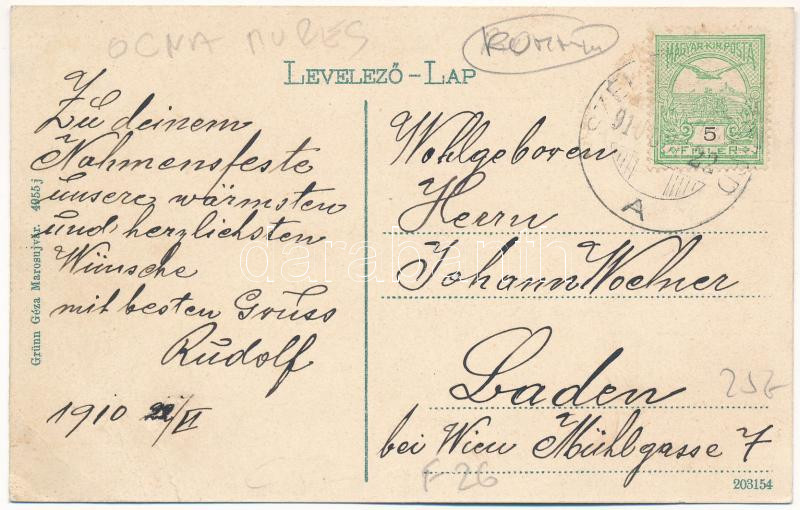 OCNA MUREȘ
LEVELEZŐ-LAP
MAGYAR KIR. POSTA
5
FILLÉR
A
Zu deinem
Nahmensfeste
unsere wärmsten
und herzlichsten
Wünsche
mit besten Gruss
Rudolf
1910 22/VI
Wohlgeboren
Herrn
Johann Woelner
Baden
bei Wien Mühlgasse 7
Grünn Géza Marosujvár. 4955 j
F 26
203154
darabanth